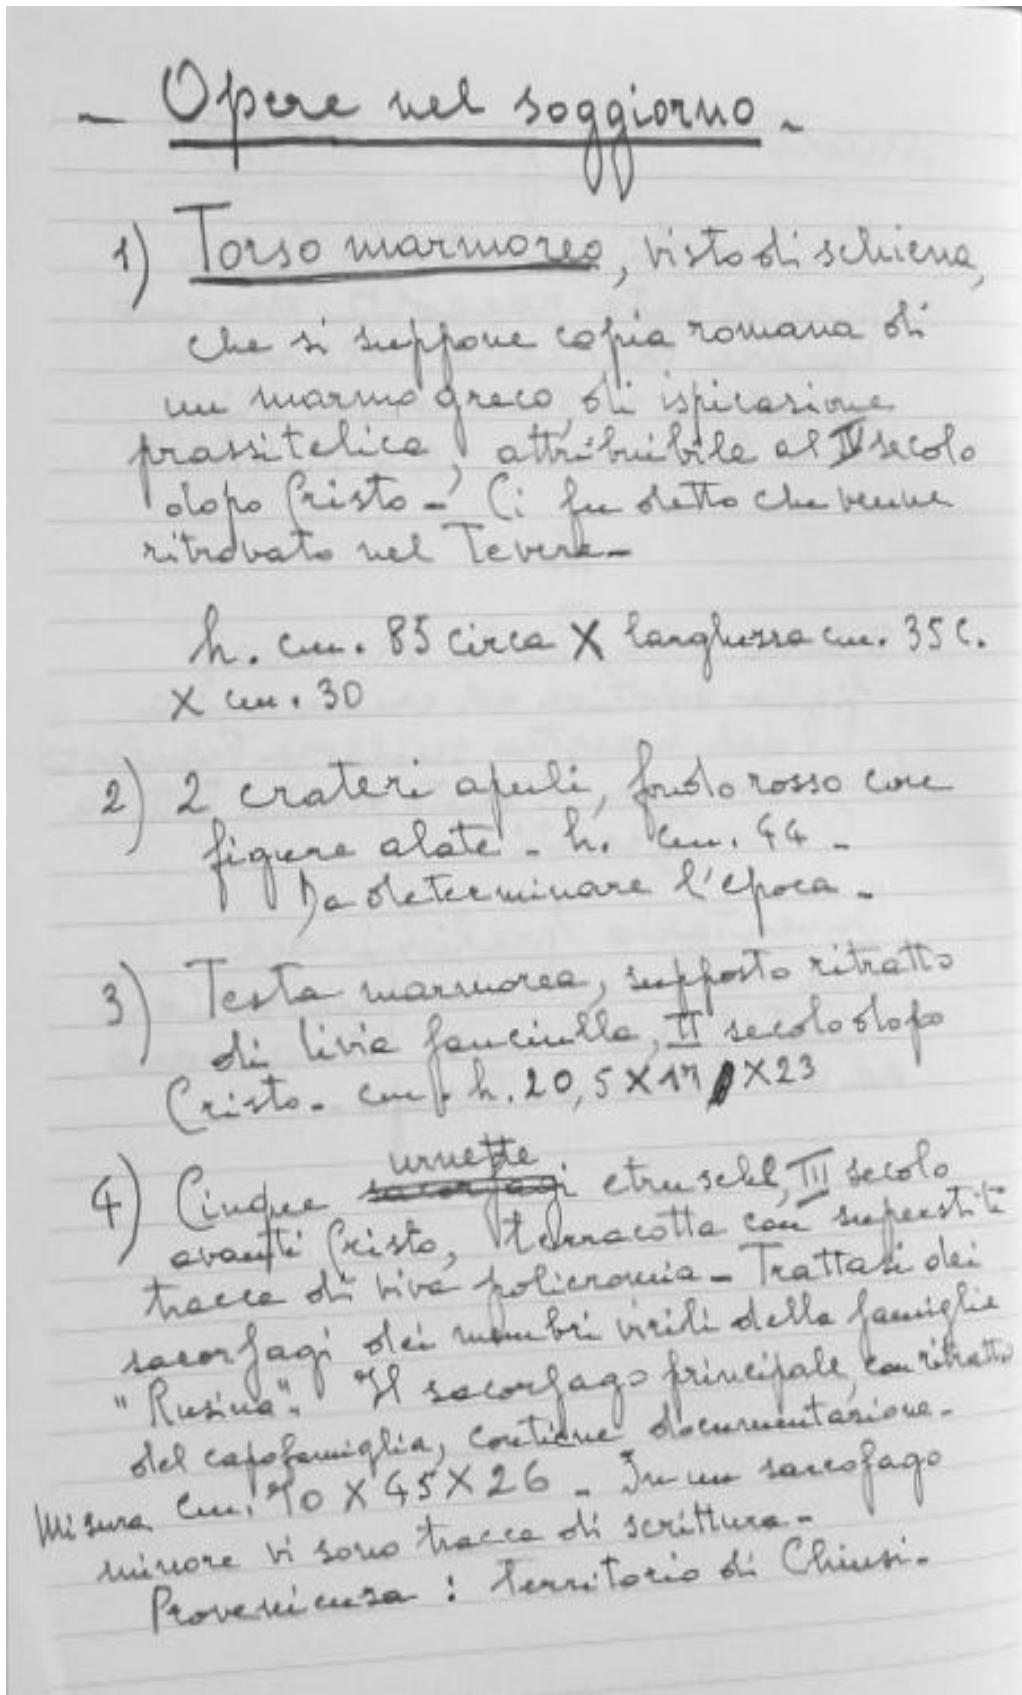 - Opere nel soggiorno -
1) Torso marmoreo, visto di schiena,
che si suppone copia romana di
un marmo greco, di ispirazione
prassitelica, attribuibile al IV secolo
dopo Cristo - Ci fu detto che venne
ritrovato nel Tevere -
h. cm. 85 circa X larghezza cm. 35 c.
X cm. 30
2) 2 crateri apuli, fondo rosso con
figure alate - h. cm. 44 -
Da determinare l'epoca -
3) Testa marmorea, supposto ritratto
di Livia fanciulla, II secolo dopo
Cristo - cm. h. 20,5 X 17 X 23
urnette
4) Cinque sarcofagi etruschi, III secolo
avanti Cristo, terracotta con superstiti
tracce di viva policromia - Trattasi dei
sarcofagi dei membri virili della famiglia
"Rusina". Il sarcofago principale, con ritratto
del capofamiglia, contiene documentazione -
Misura cm. 70 X 45 X 26 - In un sarcofago
minore vi sono tracce di scrittura -
Provenienza : territorio di Chiusi -